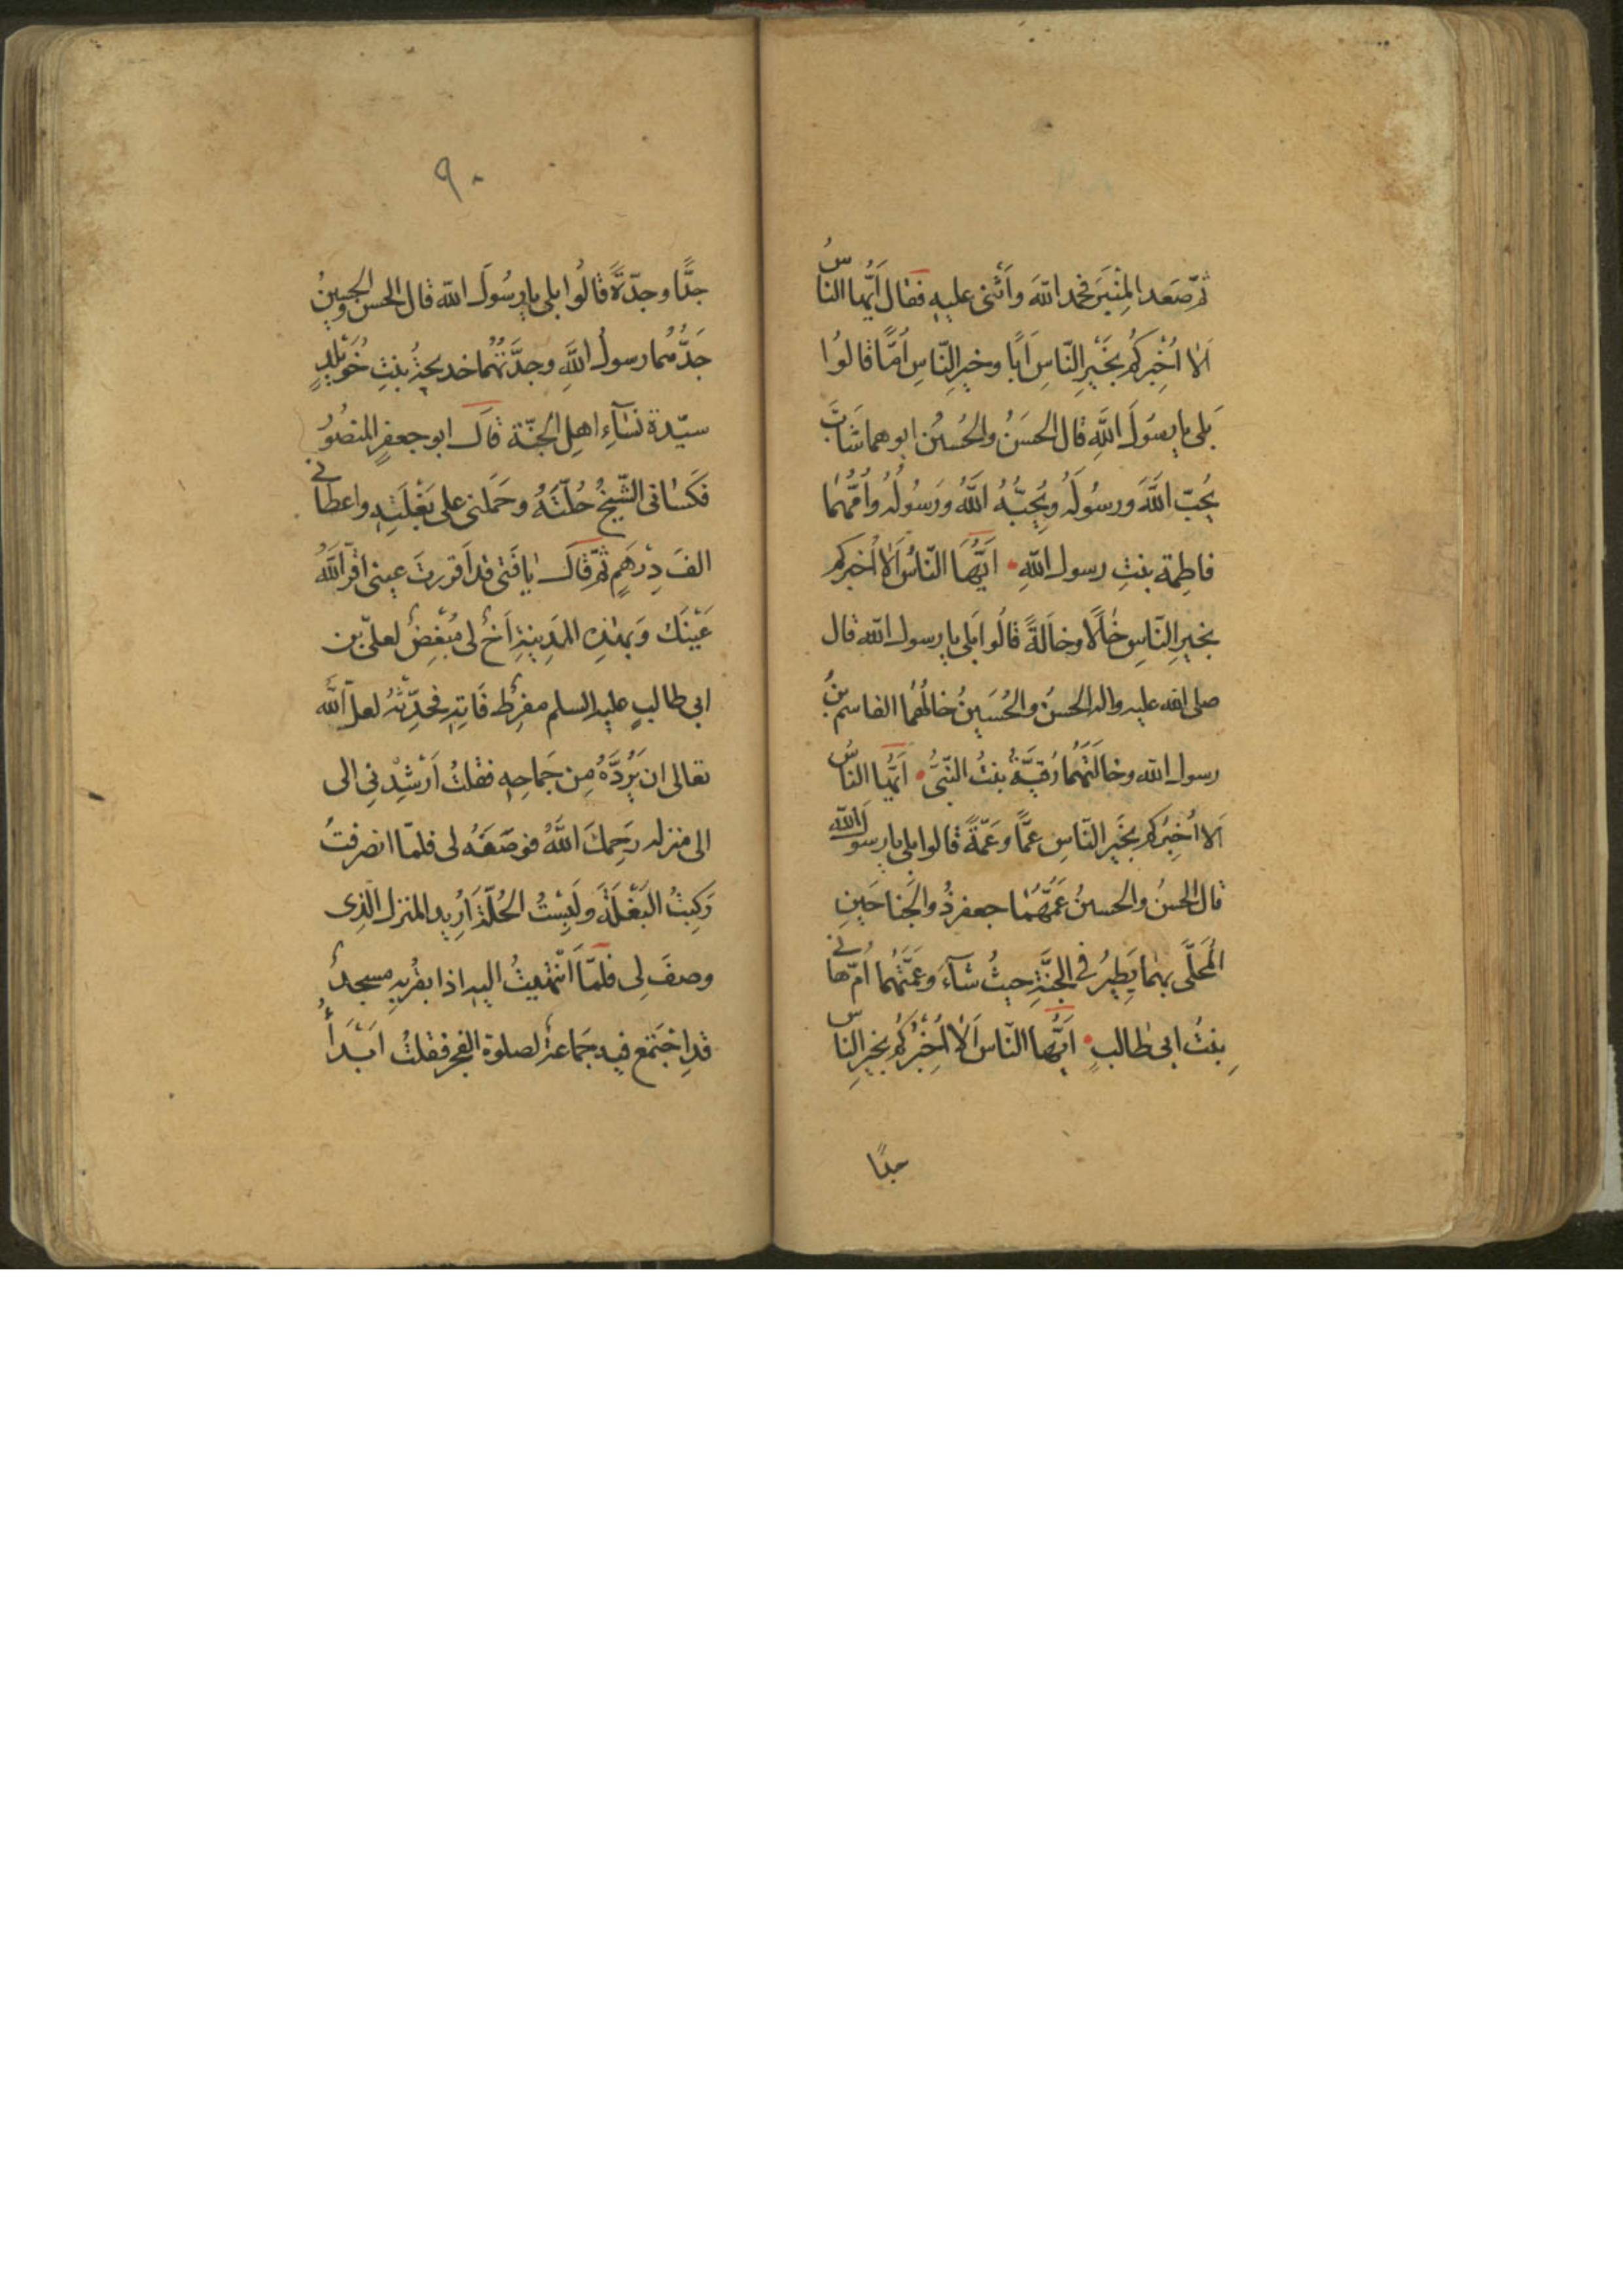 ثُمّ صَعَد المِنْبَرَ فحمد اللهَ وأَثنى عليهِ فقال أيّها الناسُ
اَلا اُخْبِركُم بخَيْرِ النّاسِ اَبًا وخيرِ النّاسِ اُمًّا قالُوا
بَلى يا رسُولَ اللَّهِ قال الحسَنُ والحُسينُ ابوهما شَابٌّ
يُحِبّ اللَّهَ ورسُولَهُ ويُحِبُّهُ اللَّهُ وَرَسُولُهُ واُمُّهُما
فاطِمة بنتِ رسول اللهِ اَيُّهَا النّاسُ اَلا اُخبركم
بخيرِ النّاسِ خالًا وخالَةً قالُوا بَلى يا رسول الله قال
صلى الله عليه واله الحسَنُ والحُسَينُ خالُهُما القاسم بنُ
رسول الله وخالَتُهُما رُقيَّةُ بنتُ النّبيّ اَيُّها الناسُ
اَلا اُخبِرُكم بخَيرِ النّاسِ عمًّا وعَمّةً قالوا بلى يا رسول الله
قال الحسنُ والحسينُ عَمُّهُمَا جعفر ذُو الجَناحَينِ
المُحَلَّى بهما يَطِيرُ في الجنَّةِ حيثُ شآءَ وعَمَّتُهُما اُمّ هانى
بِنتُ ابى طالبٍ اَيُّها النّاس اَلا اُخْبُركُم بخيرِ الناس
جدًا
٩٠
جدًّا وجدّةً قالُوا بلى يا رسُولَ الله قال الحسن والحسينُ
جَدُّهُما رسولُ اللَّهِ وجدَّتُهُما خديجةُ بنتِ خُوَيْلِدٍ
سيّدة نسآءِ اهلِ الجنّة قال ابو جعفرٍ المنصُورُ
فكَسَانى الشّيخُ حُلّتَهُ وحَمَلنى على بَغْلَتِهِ واعطانى
الفَ دِرْهَمٍ ثمّ قال يا فَتى قد اَقررتَ عينى اقرّ اللَّهُ
عَيْنَك وَبهذهِ المَدِينةِ اَخٌ لى مُبْغِضٌ لعلىّ بن
ابى طالبٍ عليه السلم مفرِطٌ فَاتِهِ فحَدِّثْهُ لعلّ اللَّهَ
تعالى ان يَرُدَّهُ مِن جَماحِهِ فقلتُ اَرْشِدْنِى الى
الى منزله رحَمِكَ اللَّهُ فوصَفَهُ لى فلمّا انصرفتُ
رَكِبتُ البَغْلَةَ ولَبِسْتُ الحُلّةَ اُرِيد المنزل الّذِى
وصفَ لِى فلمّا اَنْتهيتُ اليه اذا بقُربهِ مسجدٌ
قدِ اجْتَمع فيه جَماعةٌ لصلوة الفجر فقلتُ ابَْدَأُ